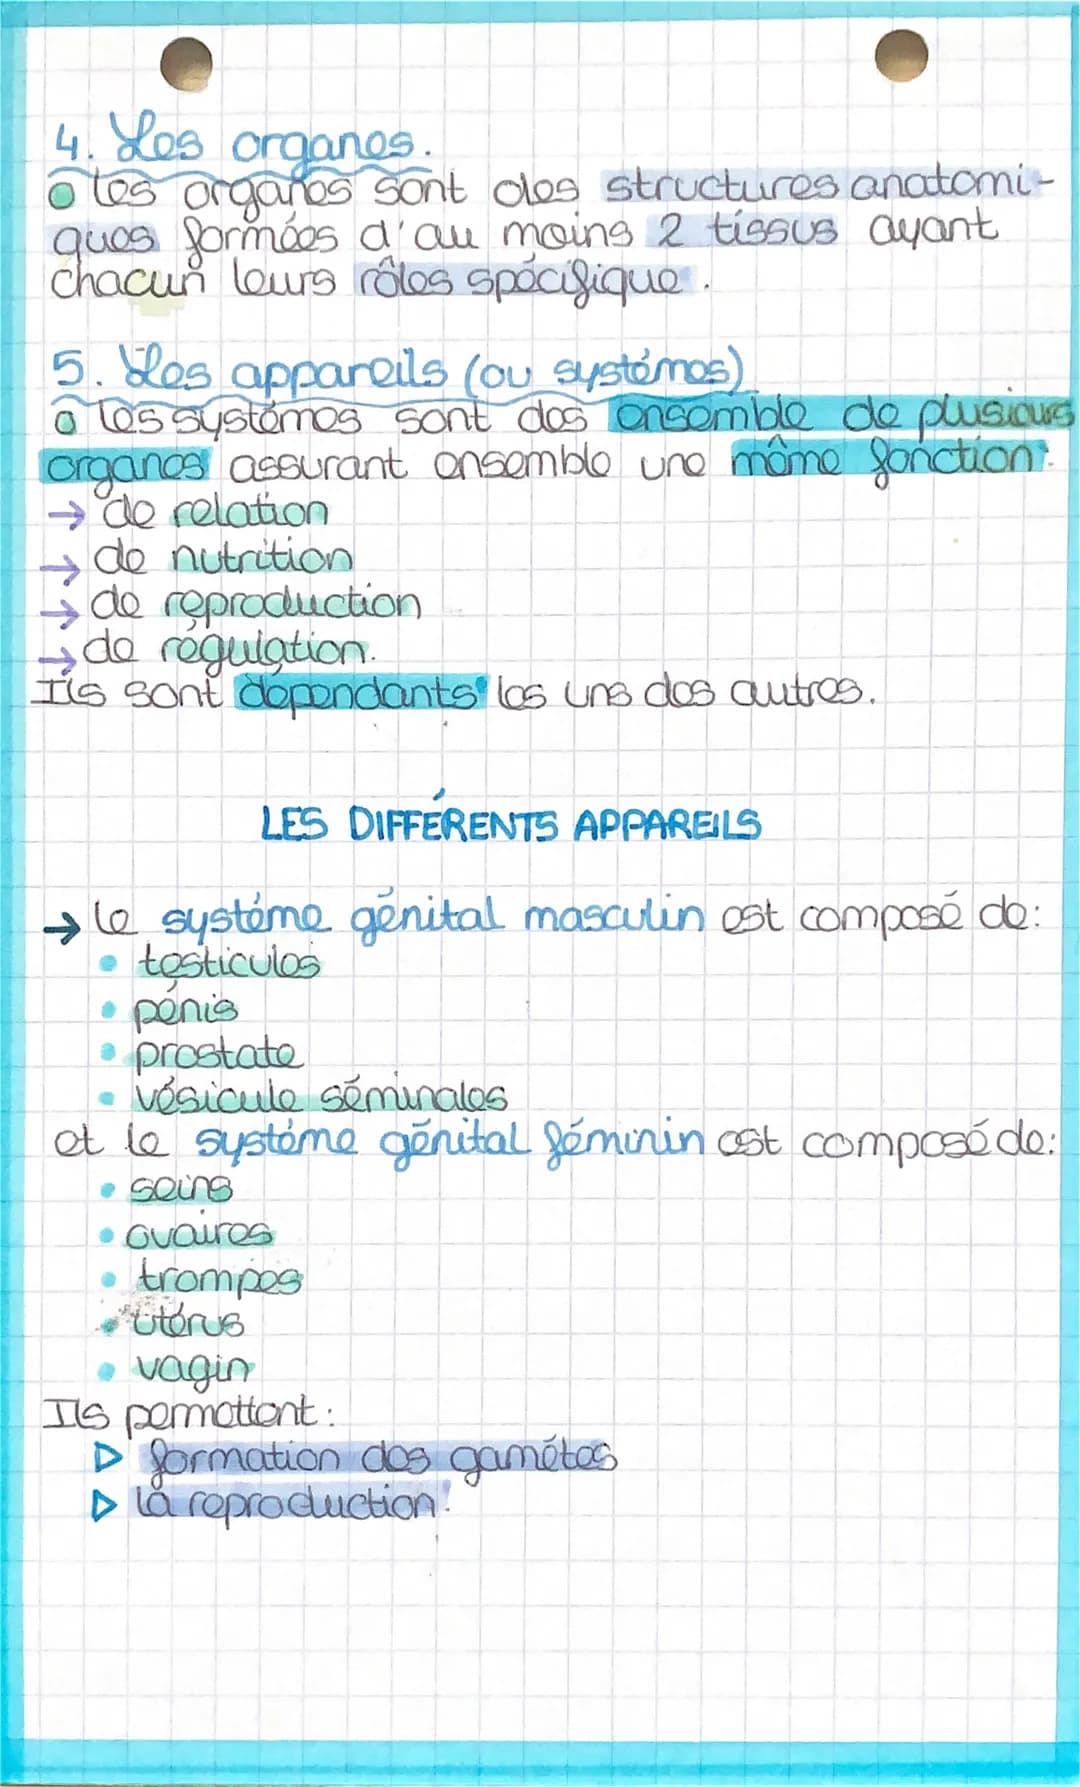 4. Les organes.
les organes sont des structures anatomi-
ques formées d'au moins 2 tissus ayant
chacun leurs rôles spécifique.
5. Les appareils (ou systémes)
les systèmes sont des ensemble de plusieurs
organes assurant ensemble une même fonction:
→ de relation
→ de nutrition
→ de reproduction
→ de régulation.
Ils sont dépendants les uns des autres.
LES DIFFÉRENTS APPAREILS
→ le systéme génital masculin est composé de:
• testicules
• pénis
• prostate
• vésicule séminales
et le systéme génital féminin est composé de:
• seins
• ovaires
• trompes
• utérus
• vagin
Ils permettent:
▷ formation des gamétes
▷ la reproduction.